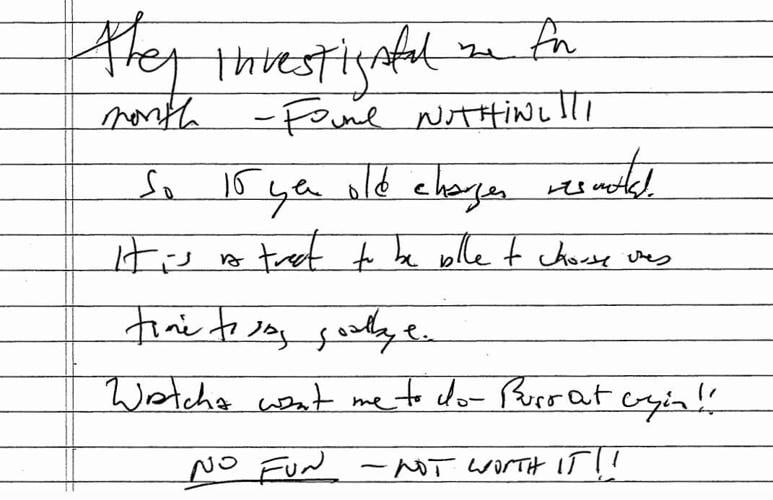 They investigated me for
month - FOUND NOTHING!!!
So 15 year old charges resulted.
It is a treat to be able to choose ones
time to say goodbye.
Watcha want me to do - Burst out cryin!!
NO FUN - NOT WORTH IT!!